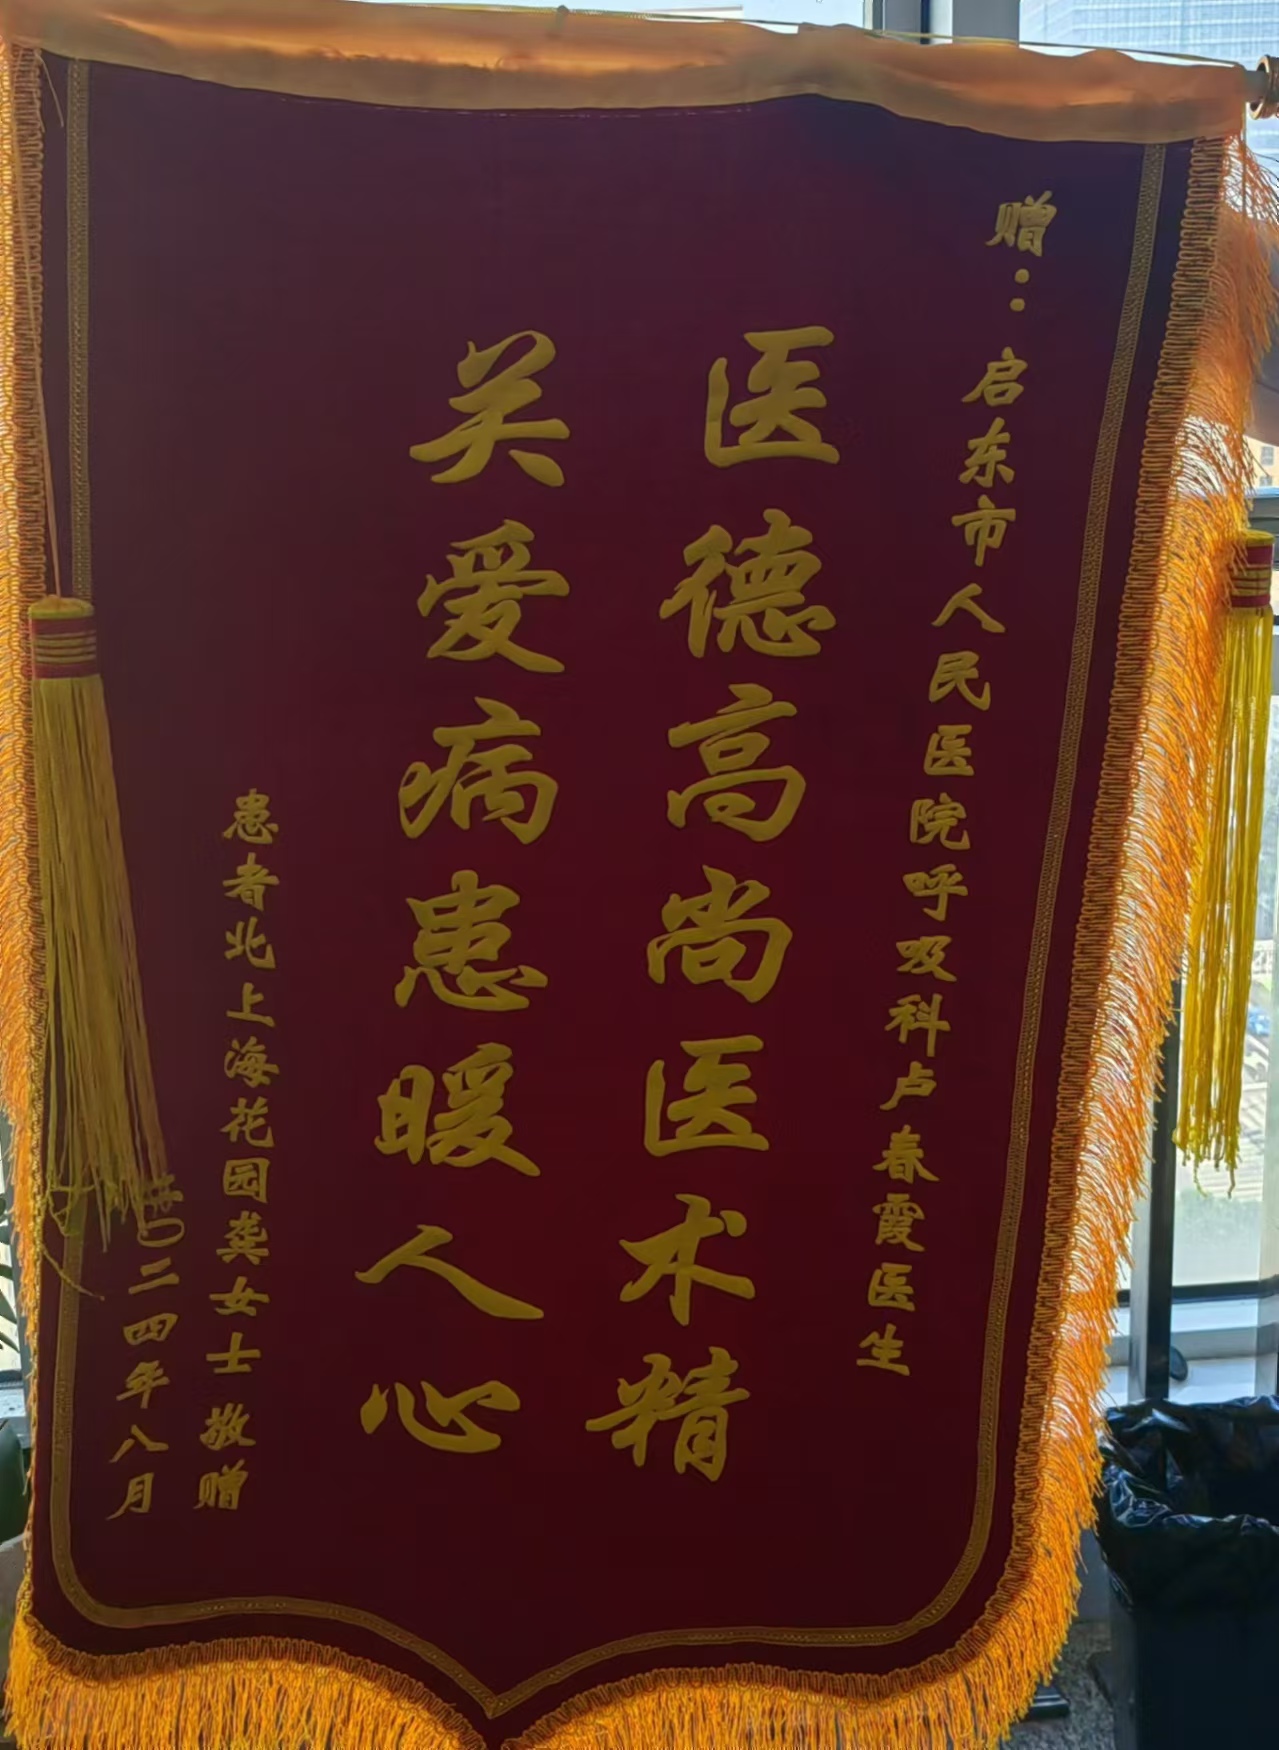 赠：启东市人民医院呼吸科卢春霞医生
医德高尚医术精
关爱病患暖人心
患者北上海花园龚女士敬赠
二〇二四年八月